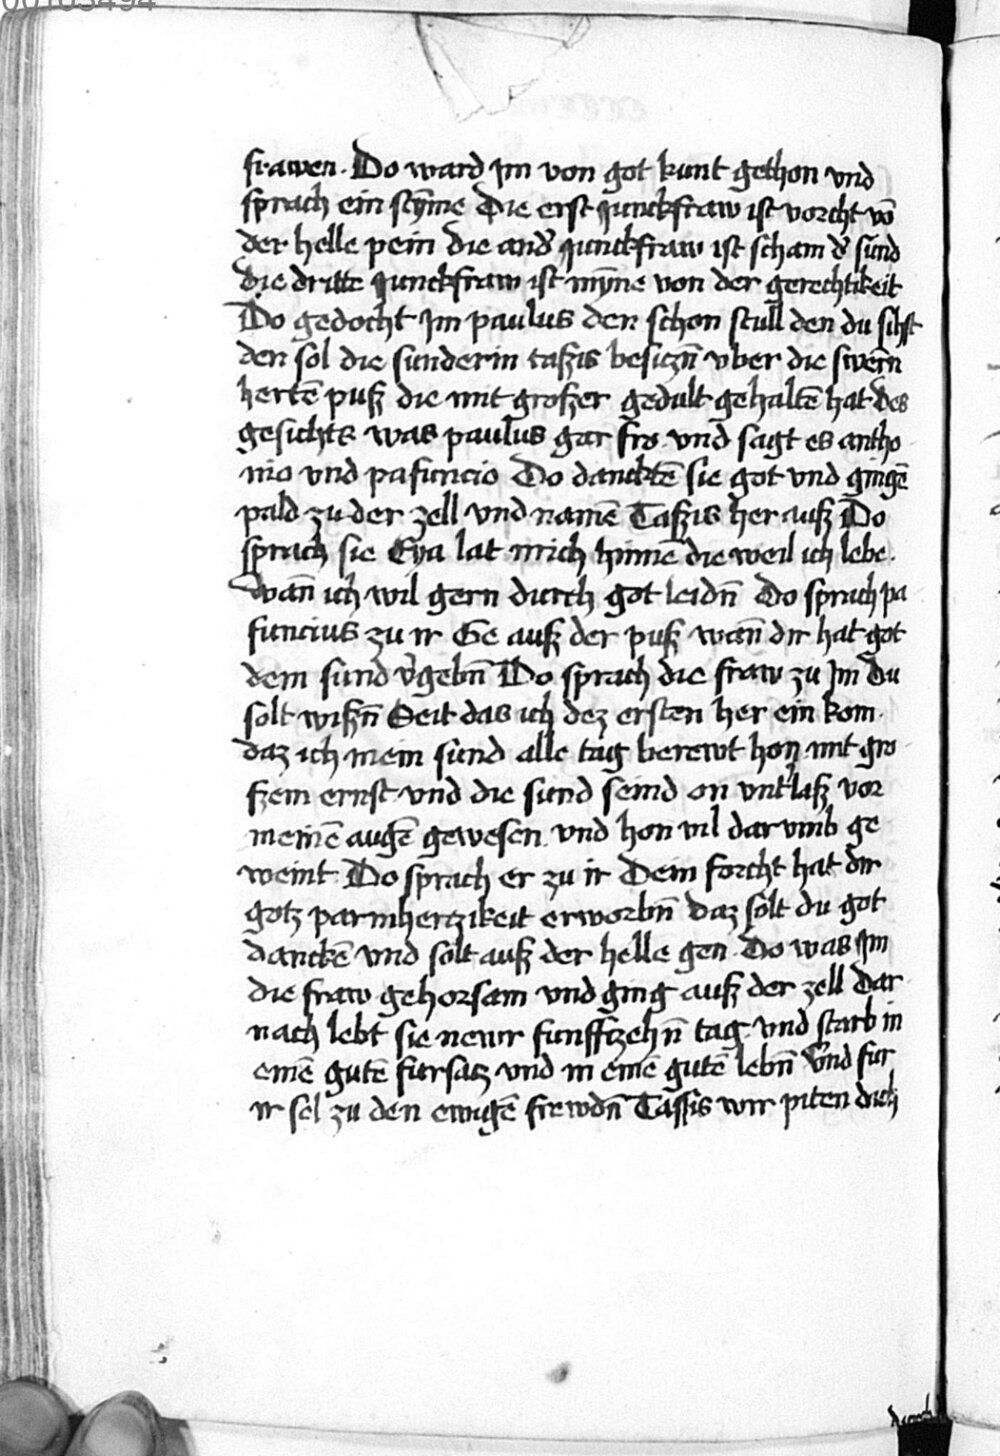 00103494
frawen. Do ward Jm von got kunt gethon vnd
sprach ein stym̄e Die erst Junckfraw ist vorcht vō
der helle pein die and̾ Junckfraw ist scham d̾ sund
die dritte Junckfraw ist mȳne von der gerechtikeit
Do gedocht Jm paulus den schon stull den du sihst
den sol die sunderin taßis besiczn̄ vber die swern̄
hertē puß die mit großer gedult gehaltē hat des
gesichts was paulus gar fro vnd sagt es antho
nio vnd pafuncio Do dancktē sie got vnd gingē
pald zu der zell vnd namē Taßis her auß Do
sprach sie Eya lat mich hinnē die weil ich lebe.
wan̄ ich wil gern durch got leidn̄ Do sprach pa
funcius zu ir Ge auß der puß wan̄ dir hat got
dem sund v̾gebn̄ Do sprach die fraw zu Jm Du
solt wißn̄ Seit das ich dez ersten her ein kom.
daz ich mein sund alle tag berewt hon mit gro
ßem ernst vnd die sund seind on vnt̾laß vor
meinē augē gewesen vnd hon vil dar vmb ge
weint Do sprach er zu ir Dein forcht hat dir
gotz parmhertzikeit erworbn̄ daz solt du got
danckē vnd solt auß der helle gen Do was Jm
die fraw gehorsam vnd ging auß der zell Dar
nach lebt sie newr funffzehn̄ tag vnd starb in
einē gutē fursatz vnd in einē gutē lebn̄ Vnd fur
ir sel zu den ewigē frewdn̄ Tassis wir piten dich